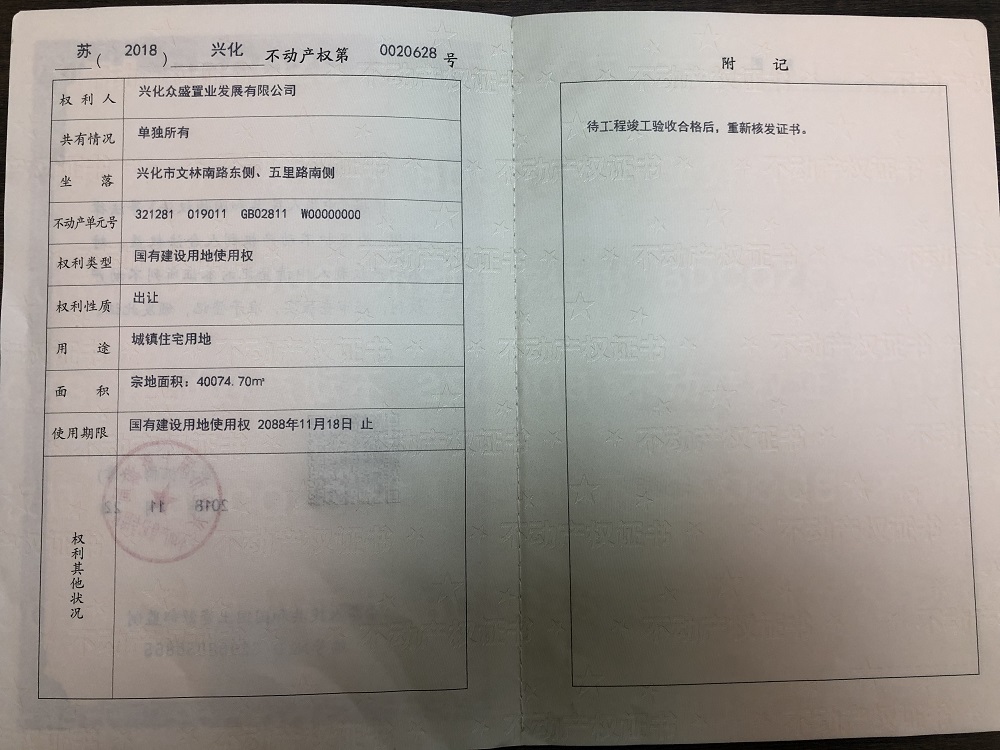 苏（2018）兴化 不动产权第 0020628 号
权利人 兴化众盛置业发展有限公司
共有情况 单独所有
坐落 兴化市文林南路东侧、五里路南侧
不动产单元号 321281 019011 GB02811 W00000000
权利类型 国有建设用地使用权
权利性质 出让
用途 城镇住宅用地
面积 宗地面积：40074.70㎡
使用期限 国有建设用地使用权 2088年11月18日 止
权利其他状况
附 记
待工程竣工验收合格后，重新核发证书。